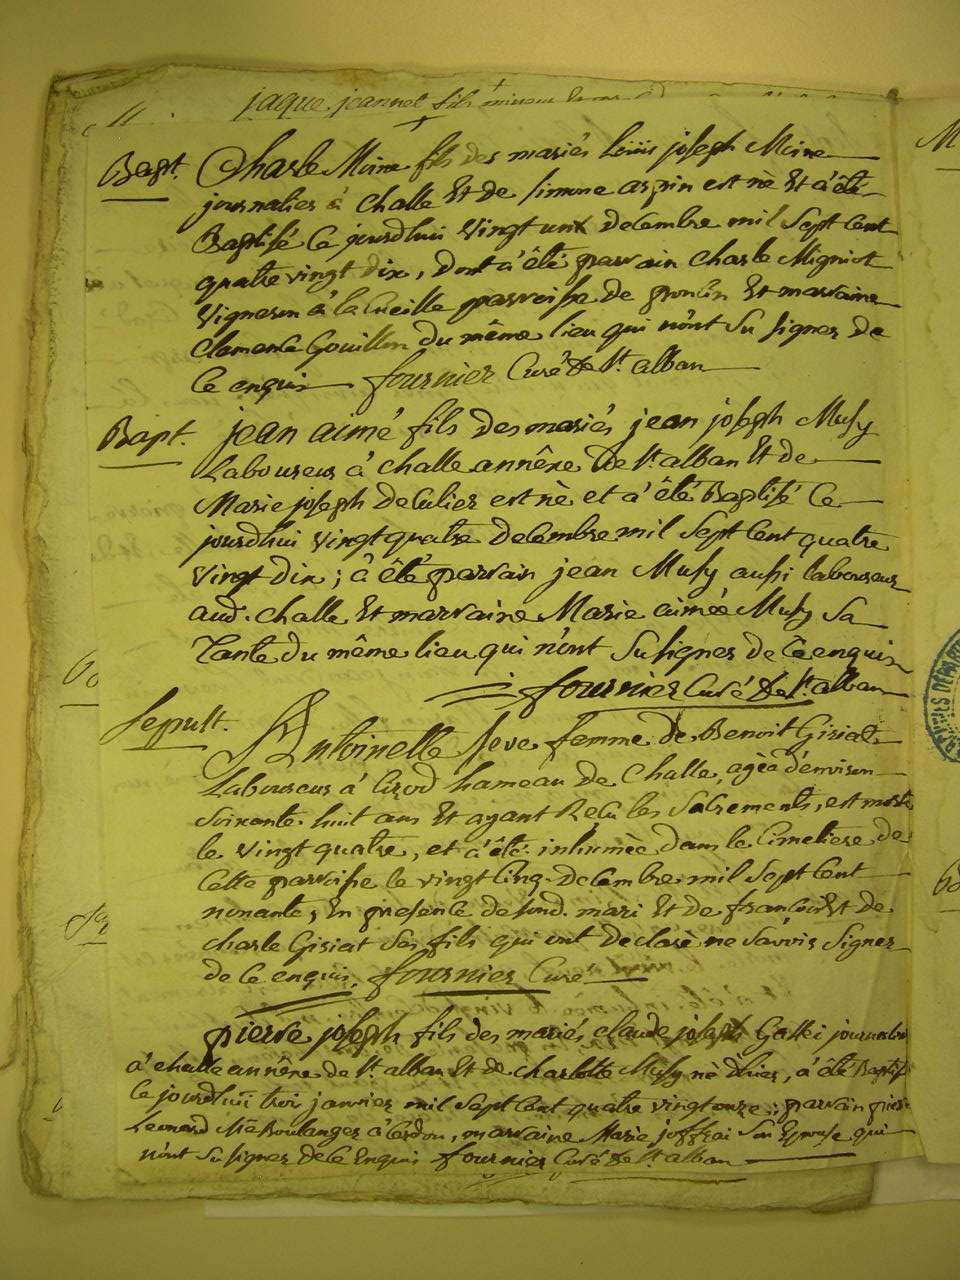 jaque jeannet fils mineur
Bapt. Charle Moine fils des mariés Louis joseph Moine
journalier à Challe Et de simone aspin est nè Et à été
Baptisé Ce jourdhui Vingt un decembre mil Sept Cent
quatre vingt dix, dont à été parrain Charle Migniot
Vigneron à la Cueille parroisse de poncin Et marraine
Clemence Gouillon du même lieu qui n'ont Su signer de
Ce enquis fournier Curé de St. alban
Bapt. jean aimé fils des mariés jean joseph Musy
Laboureur à challe annêxe de St. alban Et de
Marie joseph deculier est nè et à été Baptisé Ce
jourdhui vingt quatre decembre mil Sept Cent quatre
Vingt Dix ; à été parrain jean Musy aussi laboureur
aud. challe Et marraine Marie aimée Musy Sa
Tante du même lieu qui n'ont Su signer de Ce enquis
fournier Curé de St. alban
Sepult. Antoinette seve femme de Benoit Giriat
Laboureur à Cizod hameau de Challe, agèe d'environ
Soixante huit ans Et ayant Reçu les Sacrements, est morte
le vingt quatre, et à été inhumèe dans le Cimetiere de
Cette parroisse le vingt Cinq decembre mil Sept Cent
nonante, En presence de sond. mari Et de francois Et de
Charle Giriat Ses fils qui ont declaré ne Savoir Signer
de Ce enquis. fournier Curé
pierre joseph fils des mariés claude joseph journalier
à challe annêxe de St. alban Et de charlotte Musy né d'hier, à été Baptisé
Ce jourdhui troi janvier mil Sept Cent quatre vingt onze ; parrain
Leonard Boulanger à Cerdon, marraine Marie joffrai Son Epouse qui
n'ont Su signer de Ce Enquis fournier Curé de St. alban